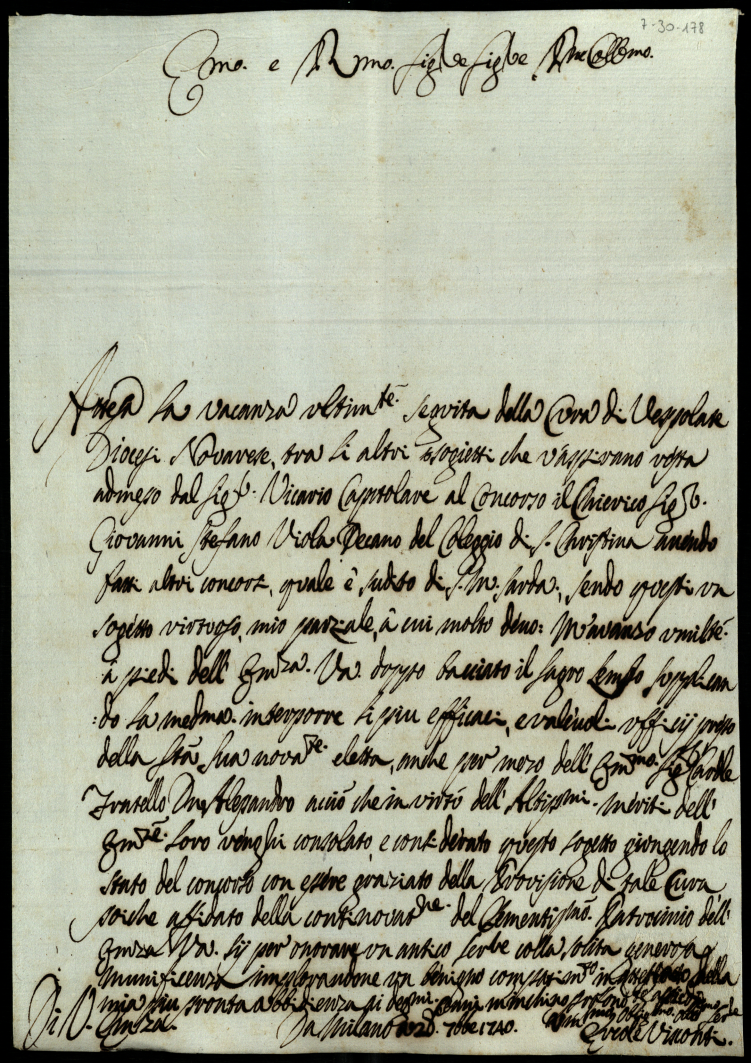 7-30-178
Emo. e Rmo. Sigre Sigre Pne Collmo.
Attesa la vacanza ultimte. seguita della Cura di Vespolate
Diocesi Novarese, tra li altri sogietti che v'aspirano resta
admeso dal Sigr. Vicario Capitolare al Concorso il Chierico Sigr.
Giovanni Stefano Viola Decano del Coleggio di S. Christina avendo
fatti altri concorsi, quale è sudito di S. M. Sarda, sendo questi un
sogietto virtuoso, mio parziale, à cui molto devo: M'avanzo umilte.
à piedi dell' Emza. Va. doppo bacciato il Sagro Lembo supplican
:do la medma. interporre li più efficaci, e valevoli ufficij presso
della Stà Sua novate. eletta, anche per mezo dell' Emmo. Sigr Cardle
Fratello Dn Alesandro acciò che in virtù dell' Altissmi. meriti dell'
Emze. loro venghi consolato, e considerato questo sogetto giongendo lo
stato del concorso con essere graziato della Provisione di tale Cura
poiche affidato della continovatne. del Clementismo. Patrocinio dell'
Emza Va. sij per onorare un antico Serve colla solita generosa
munificenza implorandone un benigno compatimto in attestato della
mia più pronta obbidienza
Di V. Emza.
Da Milano 28. 7bre 1740.
Ercole Visconti.